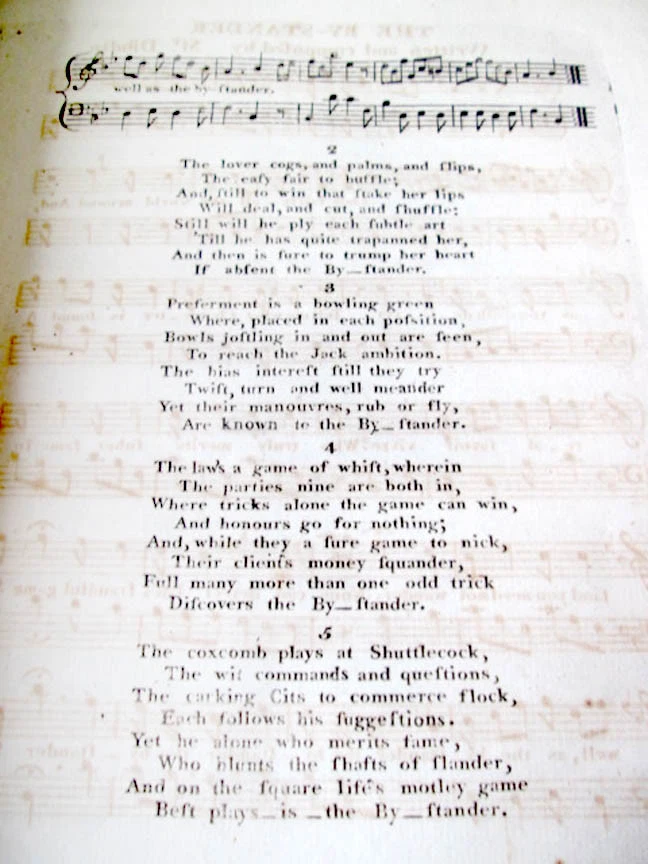 well as the by-ſtander.
2
The lover cogs, and palms, and ſlips,
The eaſy fair to huſtle;
And, ſtill to win that ſtake her lips
Will deal, and cut, and ſhuffle:
Still will he ply each ſubtle art
'Till he has quite trapanned her,
And then is ſure to trump her heart
If abſent the By—ſtander.
3
Preferment is a bowling green
Where, placed in each poſsition,
Bowls joſtling in and out are ſeen,
To reach the Jack ambition.
The bias intereſt ſtill they try
Twiſt, turn and well meander
Yet their manouvres, rub or fly,
Are known to the By—ſtander.
4
The law's a game of whiſt, wherein
The parties nine are both in,
Where tricks alone the game can win,
And honours go for nothing;
And, while they a ſure game to nick,
Their client's money ſquander,
Full many more than one odd trick
Diſcovers the By—ſtander.
5
The coxcomb plays at Shuttlecock,
The wit commands and queſtions,
The carking Cits to commerce flock,
Each follows his ſuggeſtions.
Yet he alone who merits fame,
Who blunts the ſhafts of ſlander,
And on the ſquare life's motley game
Beſt plays—is—the By—ſtander.